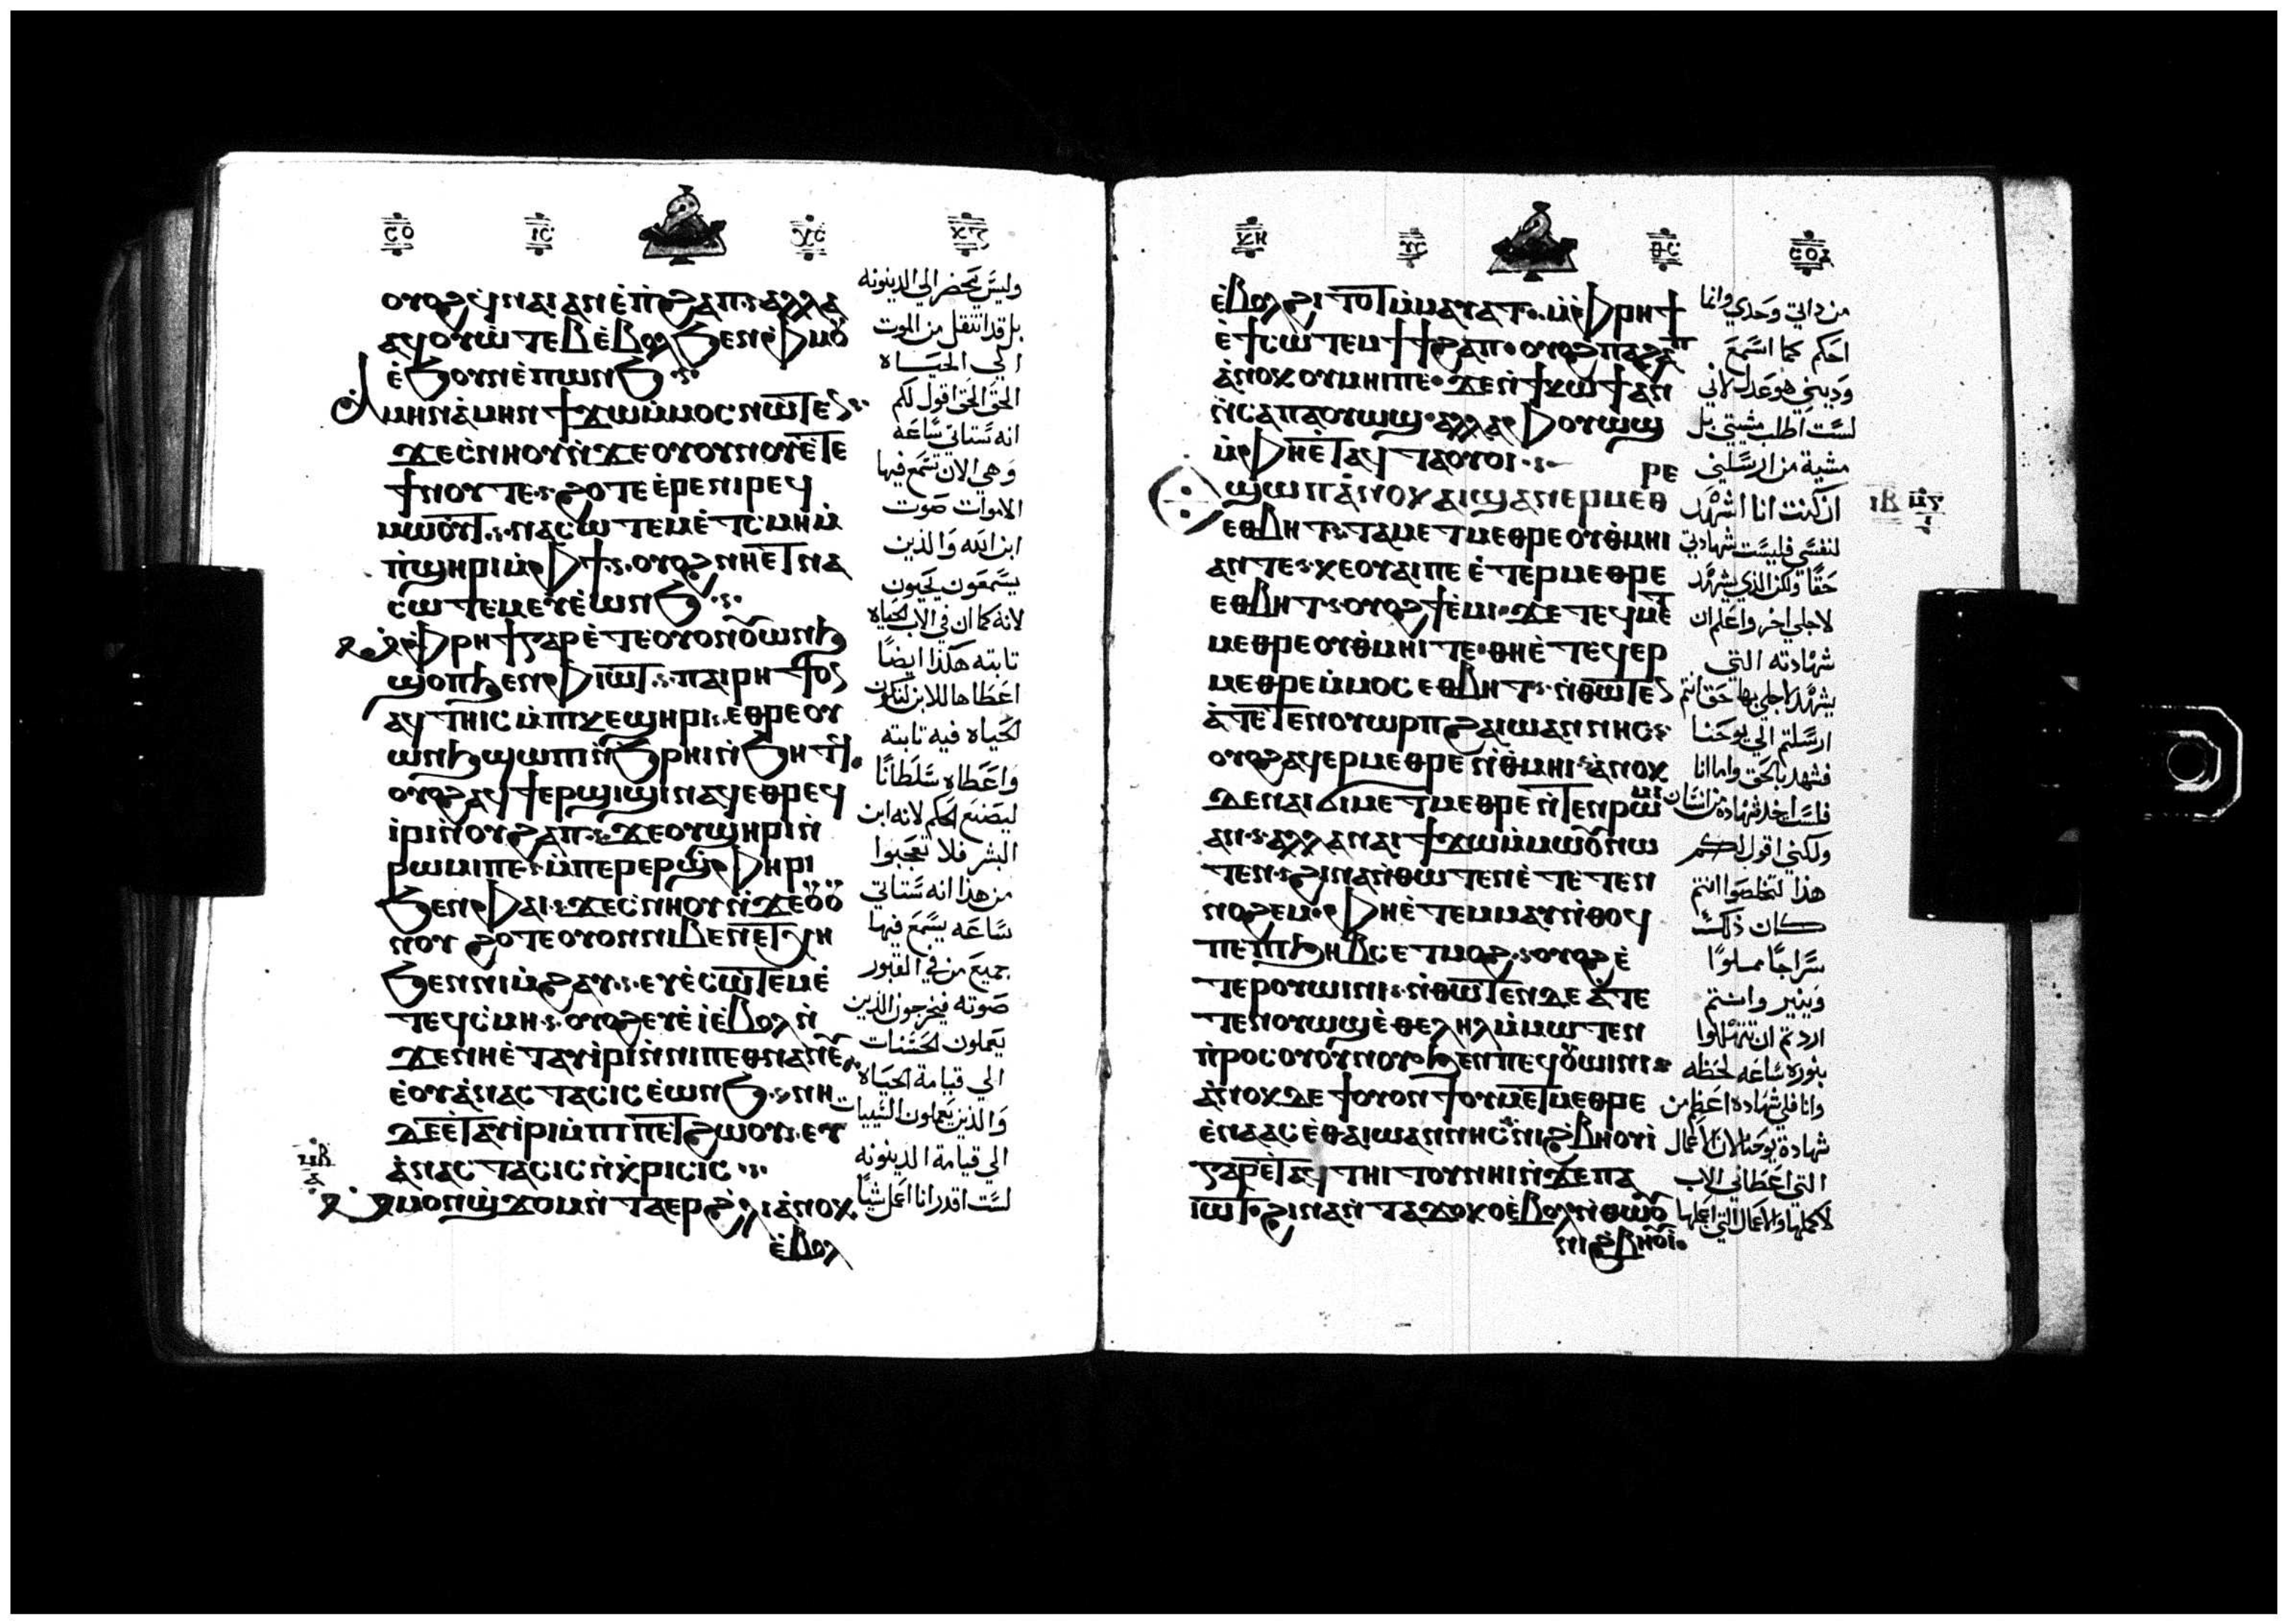 ⲟⲩⲟϩ ϥⲛⲁⲓ ⲁⲛ ⲉ̀ⲡ̀ϩⲁⲡ ⲁⲗⲗⲁ
ⲁϥⲟⲩⲱⲧⲉⲃ ⲉ̀ⲃⲟⲗ ϧⲉⲛ ⲫⲙⲟⲩ
ⲉ̀ϧⲟⲩⲛ ⲉ̀ⲡⲱⲛϧ
ⲁⲙⲏⲛ ⲁ̀ⲙⲏⲛ ϯϫⲱ ⲙ̀ⲙⲟⲥ ⲛⲱⲧⲉⲛ
ϫⲉ ⲥ̀ⲛⲏⲟⲩ ⲛ̀ϫⲉ ⲟⲩⲟⲩⲛⲟⲩ ⲉ̀ⲧⲉ
ϯⲛⲟⲩ ⲧⲉ ϩⲟⲧⲉ ⲉ̀ⲣⲉ ⲛⲓⲣⲉϥ
ⲙⲱⲟⲩⲧ ⲛⲁⲥⲱⲧⲉⲙ ⲉ̀ⲧ̀ⲥⲙⲏ ⲙ̀
ⲡ̀ϣⲏⲣⲓ ⲙ̀ⲫϯ ⲟⲩⲟϩ ⲛⲏⲉⲧⲛⲁ
ⲥⲱⲧⲉⲙ ⲉⲩⲉ̀ⲱⲛϧ
ⲙ̀ⲫⲣⲏϯ ⲅⲁⲣ ⲉ̀ⲧⲉ ⲟⲩⲟⲛ ⲟⲩⲱⲛϧ
ϣⲟⲡ ϧⲉⲛ ⲫⲓⲱⲧ ⲡⲁⲓⲣⲏϯ ⲟⲛ
ⲁϥⲧⲏⲓⲥ ⲙ̀ⲡⲕⲉϣⲏⲣⲓ ⲉⲑⲣⲉ ⲟⲩ
ⲱⲛϧ ϣⲱⲡⲓ ⲛ̀ϧⲣⲏⲓ ⲛ̀ϧⲏⲧϥ
ⲟⲩⲟϩ ⲁϥϯⲉⲣϣⲓϣⲓ ⲛⲁϥ ⲉⲑⲣⲉϥ
ⲓⲣⲓ ⲛ̀ⲟⲩϩⲁⲡ ϫⲉ ⲟⲩϣⲏⲣⲓ ⲛ̀
ⲣⲱⲙⲓ ⲡⲉ ⲙ̀ⲡⲉⲣⲉⲣϣ̀ⲫⲏⲣⲓ
ϧⲉⲛ ⲫⲁⲓ ϫⲉ ⲥ̀ⲛⲏⲟⲩ ⲛ̀ϫⲉ ⲟⲩⲟⲩ
ⲛⲟⲩ ϩⲟⲧⲉ ⲟⲩⲟⲛ ⲛⲓⲃⲉⲛ ⲉⲧⲭⲏ
ϧⲉⲛ ⲛⲓⲙ̀ϩⲁⲩ ⲉⲩⲉ̀ⲥⲱⲧⲉⲙ ⲉ̀
ⲧⲉϥⲥ̀ⲙⲏ ⲟⲩⲟϩ ⲉⲩⲉ̀ⲓ̀ ⲉ̀ⲃⲟⲗ ⲛ̀
ϫⲉ ⲛⲏⲉ̀ⲧⲁⲩⲓ̀ⲣⲓ ⲛ̀ⲛⲓⲡⲉⲑⲛⲁⲛⲉⲩ
ⲉ̀ⲟⲩⲁ̀ⲛⲁⲥⲧⲁⲥⲓⲥ ⲉ̀ⲱⲛϧ ⲛⲏ
ⲇⲉ ⲉ̀ⲧⲁⲩⲓ̀ⲣⲓ ⲙ̀ⲡⲓⲡⲉⲧϩⲱⲟⲩ ⲉⲩ
ⲁ̀ⲛⲁⲥⲧⲁⲥⲓⲥ ⲛ̀ⲕ̀ⲣⲓⲥⲓⲥ
ⲙ̀ⲙⲟⲛ ϣ̀ϫⲟⲙ ⲛ̀ⲧⲁⲉⲣ ϩ̀ⲗⲓ ⲁ̀ⲛⲟⲕ
ⲉ̀ⲃⲟⲗ
وليس يحضر الي الدينونه
بل قد انتقل من الموت
الي الحياه
الحق الحق اقول لكم
انه ستاتي ساعه
وهي الان تسمع فيها
الاموات صوت
ابن الله والذين
يسمعون يحيون
لانه كما ان في الاب الحياه
ثابته هكذا ايضا
اعطاها للابن لتكون
الحياه فيه ثابته
واعطاه سلطانا
ليصنع الحكم لانه ابن
البشر فلا تعجبوا
من هذا انه ستاتي
ساعه يسمع فيها
جميع من في القبور
صوته فيخرجون الذين
يعملون الحسنات
الي قيامة الحياه
والذين يعملون السيات
الي قيامة الدينونه
لست اقدر انا اعمل شيا
ⲉ̀ⲃⲟⲗ ϩⲓⲧⲟⲧ ⲙ̀ⲙⲁⲩⲁⲧ ⲙ̀ⲫⲣⲏϯ
ⲉ̀ϯⲥⲱⲧⲉⲙ ϯϯϩⲁⲡ ⲟⲩⲟϩ ⲡⲁϩⲁⲡ
ⲁ̀ⲛⲟⲕ ⲟⲩⲙⲏⲓ ⲡⲉ ϫⲉ ⲛ̀ϯⲕⲱϯ ⲁⲛ
ⲛ̀ⲥⲁ ⲡⲁⲟⲩⲱϣ ⲁⲗⲗⲁ ⲫⲟⲩⲱϣ
ⲙ̀ⲫⲏⲉ̀ⲧⲁϥⲧⲁⲟⲩⲟⲓ
ⲉϣⲱⲡ ⲁ̀ⲛⲟⲕ ⲁⲓϣⲁⲛⲉⲣⲙⲉⲑⲣⲉ
ⲉⲑⲃⲏⲧ ⲧⲁⲙⲉⲧⲙⲉⲑⲣⲉ ⲟⲩⲑⲙⲏⲓ
ⲁⲛ ⲧⲉ ⲕⲉⲟⲩⲁⲓ ⲡⲉ ⲉ̀ⲧⲉⲣⲙⲉⲑⲣⲉ
ⲉⲑⲃⲏⲧ ⲟⲩⲟϩ ϯⲉ̀ⲙⲓ ϫⲉ ⲧⲉϥⲙⲉⲧ
ⲙⲉⲑⲣⲉ ⲟⲩⲑⲙⲏⲓ ⲧⲉ ⲑⲏⲉ̀ⲧⲉϥⲉⲣ
ⲙⲉⲑⲣⲉ ⲙ̀ⲙⲟⲥ ⲉⲑⲃⲏⲧ ⲛ̀ⲑⲱⲧⲉⲛ
ⲁ̀ⲧⲉⲧⲉⲛⲟⲩⲱⲣⲡ ϩⲁ ⲓⲱⲁⲛⲛⲏⲥ
ⲟⲩⲟϩ ⲁϥⲉⲣⲙⲉⲑⲣⲉ ⲛ̀ⲑⲙⲏⲓ ⲁ̀ⲛⲟⲕ
ⲇⲉ ⲛⲁⲓϭⲓⲙⲉⲧⲙⲉⲑⲣⲉ ⲛ̀ⲧⲉⲛ ⲣⲱⲙⲓ
ⲁⲛ ⲁⲗⲗⲁ ⲛⲁⲓ ϯϫⲱ ⲙ̀ⲙⲱⲟⲩ ⲛⲱ
ⲧⲉⲛ ϩⲓⲛⲁ ⲛ̀ⲑⲱⲧⲉⲛ ⲉ̀ⲧⲉⲧⲉⲛ
ⲛⲟϩⲉⲙ ⲫⲏⲉ̀ⲧⲉⲙⲙⲁⲩ ⲛ̀ⲑⲟϥ
ⲡⲉ ⲡϧⲏⲃⲥ ⲉⲧⲙⲟϩ ⲟⲩⲟϩ ⲉ̀
ⲧⲉⲣⲟⲩⲱⲓⲛⲓ ⲛ̀ⲑⲱⲧⲉⲛ ⲇⲉ ⲁ̀ⲧⲉ
ⲧⲉⲛⲟⲩⲱϣ ⲉ̀ⲑⲉⲗⲏⲗ ⲙ̀ⲙⲱⲧⲉⲛ
ⲡ̀ⲣⲟⲥ ⲟⲩⲟⲩⲛⲟⲩ ϧⲉⲛ ⲡⲉϥⲟⲩⲱⲓⲛⲓ
ⲁ̀ⲛⲟⲕ ⲇⲉ ϯⲟⲩⲟⲛϯ ⲟⲩⲙⲉⲧⲙⲉⲑⲣⲉ
ⲉ̀ⲛⲁⲁⲥ ⲉ̀ⲑⲁ ⲓⲱⲁⲛⲛⲏⲥ ⲛⲓϩ̀ⲃⲏⲟⲩⲓ
ⲅⲁⲣ ⲉ̀ⲧⲁϥⲧⲏⲓⲧⲟⲩ ⲛⲏⲓ ⲛ̀ϫⲉ ⲡⲁ
ⲓⲱⲧ ϩⲓⲛⲁ ⲛ̀ⲧⲁϫⲟⲕⲟⲩ ⲉ̀ⲃⲟⲗ ⲛ̀ⲑⲱⲟⲩ
ⲛⲓϩ̀ⲃⲏⲟⲩⲓ
من ذاتي وحدي وانما
احكم كما اسمع
وديني هو عدل لاني
لست اطلب مشيتي بل
مشية من ارسلني
ان كنت انا اشهد
لنفسي فليست شهادتي
حقا ولكن الذي يشهد
لاجلي اخر واعلم ان
شهادته التي
يشهد لاجلي بها حق انتم
ارسلتم الي يوحنا
فشهد بالحق واما انا
فلست اخذ شهاده من انسان
ولكني اقول لكم
هذا لتخلصوا انتم
كان ذلك
سراجا مملوا
وينير وانتم
اردتم ان تتهللوا
بنوره ساعه لحظه
وانا فلي شهاده اعظم من
شهادة يوحنا لان الاعمال
التي اعطاني الاب
لاكملها والاعمال التي اعملها